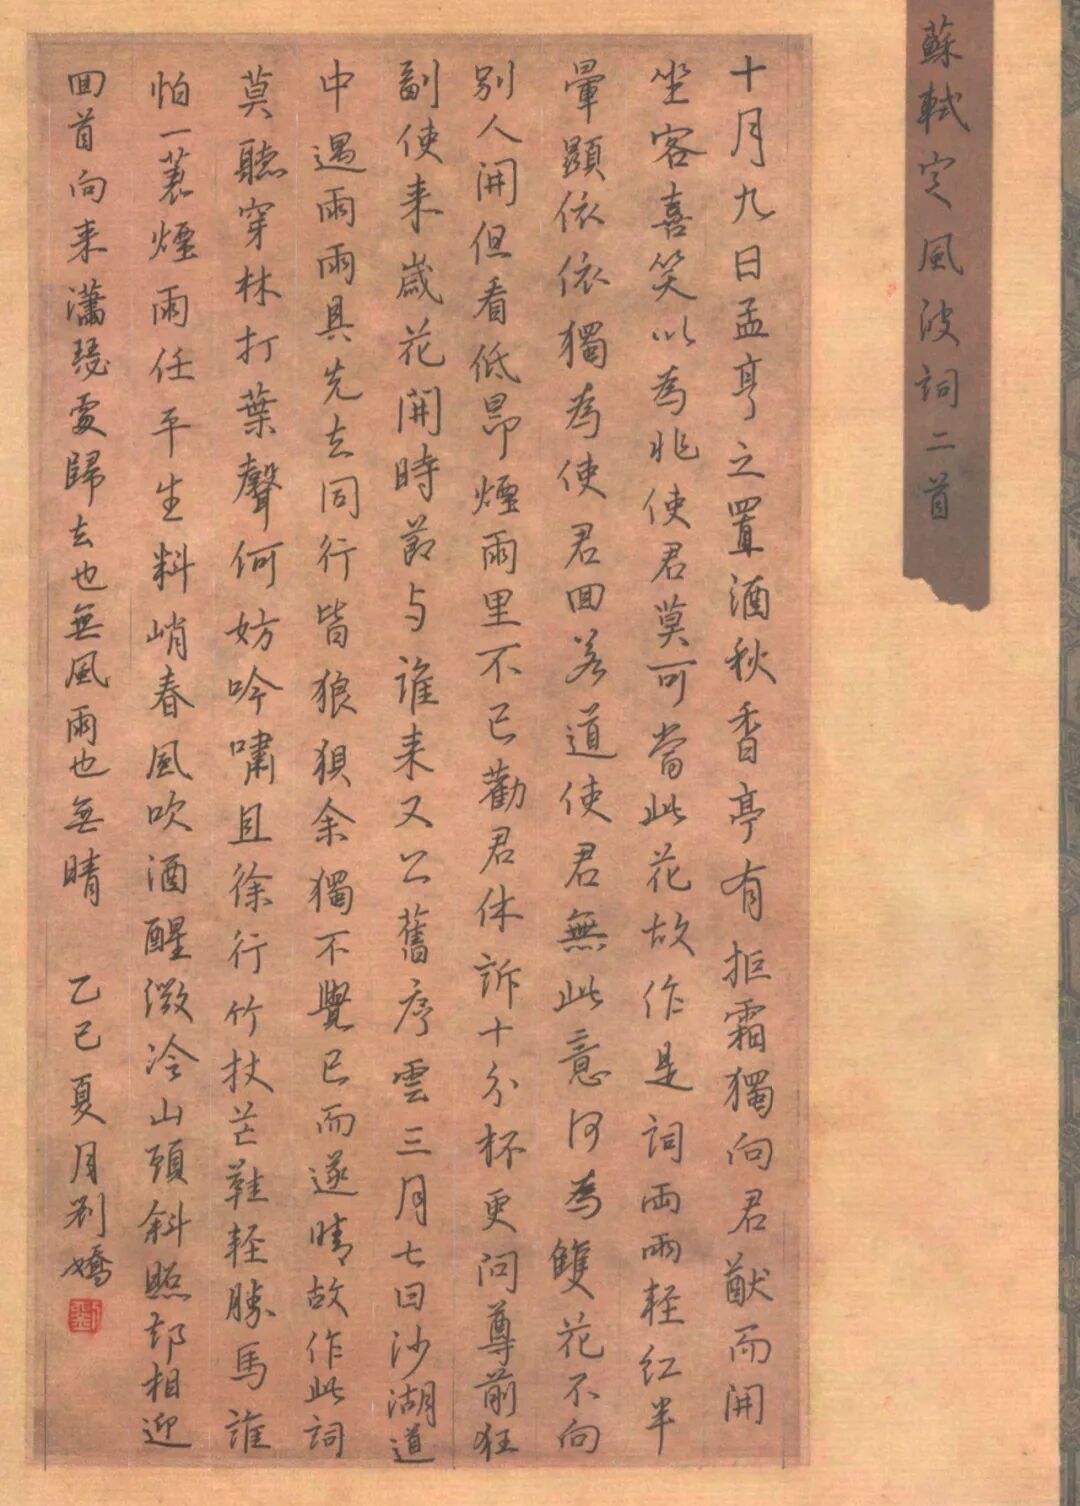 蘇軾定風波詞二首
十月九日孟亨之置酒秋香亭有拒霜獨向君猷而開
坐客喜笑以為非使君莫可當此花故作是詞兩兩輕紅半
暈顯依依獨為使君回若道使君無此意何為雙花不向
別人開但看低昂煙雨里不已勸君休訴十分杯更問尊前狂
副使来歲花開時節与誰来又公舊序雲三月七日沙湖道
中遇雨雨具先去同行皆狼狽余獨不覺已而遂晴故作此詞
莫聽穿林打葉聲何妨吟嘯且徐行竹杖芒鞋輕勝馬誰
怕一蓑煙雨任平生料峭春風吹酒醒微冷山頭斜照却相迎
回首向来瀟瑟處歸去也無風雨也無晴 乙巳夏月劉嬌